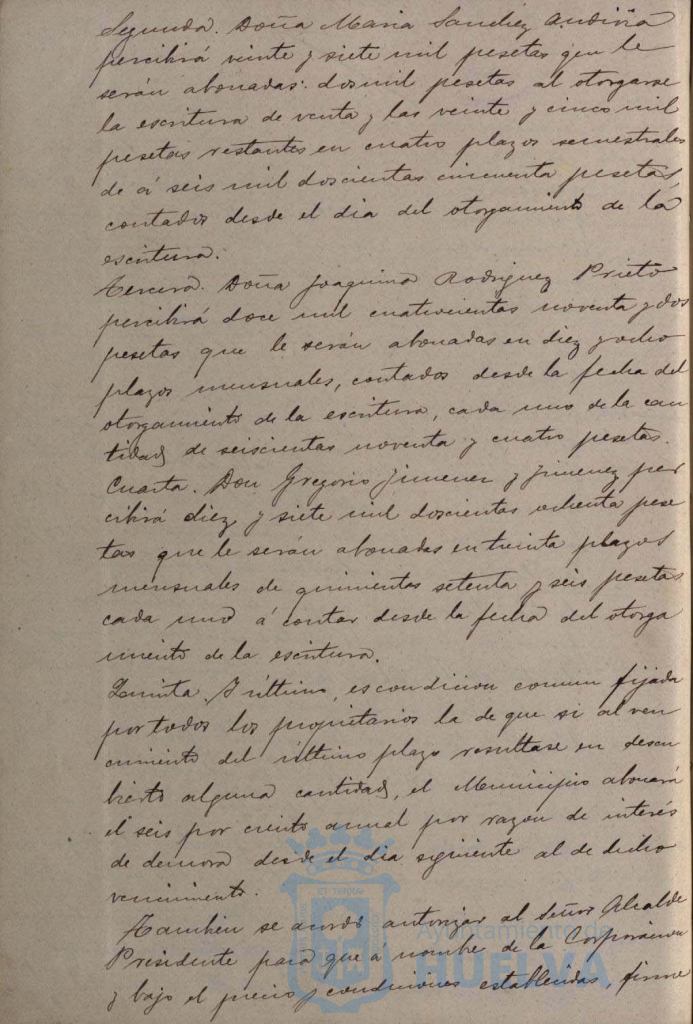 Segunda. Doña Maria Sanchez Andivia
percibirá veinte y siete mil pesetas que le
serán abonadas: dos mil pesetas al otorgarse
la escritura de venta y las veinte y cinco mil
pesetas restantes en cuatro plazos semestrales
de á seis mil doscientas cincuenta pesetas
contados desde el dia del otorgamiento de la
escritura.
Tercera. Doña Joaquina Rodriguez Prieto
percibirá doce mil cuatrocientas noventa y dos
pesetas que le serán abonadas en diez y ocho
plazos mensuales, contados desde la fecha del
otorgamiento de la escritura, cada uno de la can
tidad de seiscientas noventa y cuatro pesetas.
Cuarta. Don Gregorio Jimenez y Jimenez per
cibirá diez y siete mil doscientas ochenta pese
tas que le serán abonadas en treinta plazos
mensuales de quinientas setenta y seis pesetas
cada uno á contar desde la fecha del otorga
miento de la escritura.
Quinta. Y último, es condicion comun fijada
por todos los propietarios la de que si al ven
cimiento del último plazo resultase en descu
bierto alguna cantidad, el Municipio abonará
el seis por ciento anual por razon de interés
de demora desde el dia siguiente al de dicho
vencimiento.
Tambien se acordó autorizar al Señor Alcalde
Presidente para que á nombre de la Corporacion
y bajo el precio y condiciones establecidas, firme
Ayuntamiento de
HUELVA